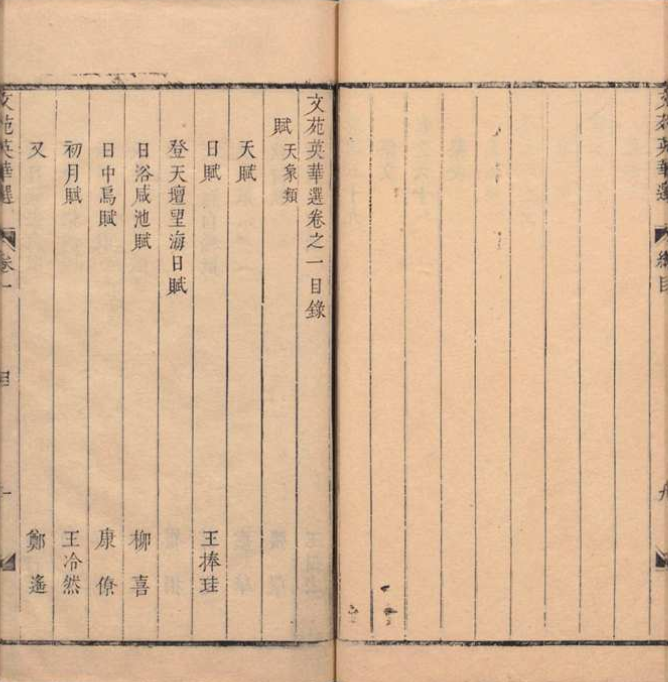 文苑英華選
總目
九
文苑英華選卷之一目錄
賦 天象類
天賦
日賦 王捧珪
登天壇望海日賦
日浴咸池賦 柳喜
日中烏賦 康僚
初月賦 王冷然
又 鄭遙
文苑英華選
卷一
目
一